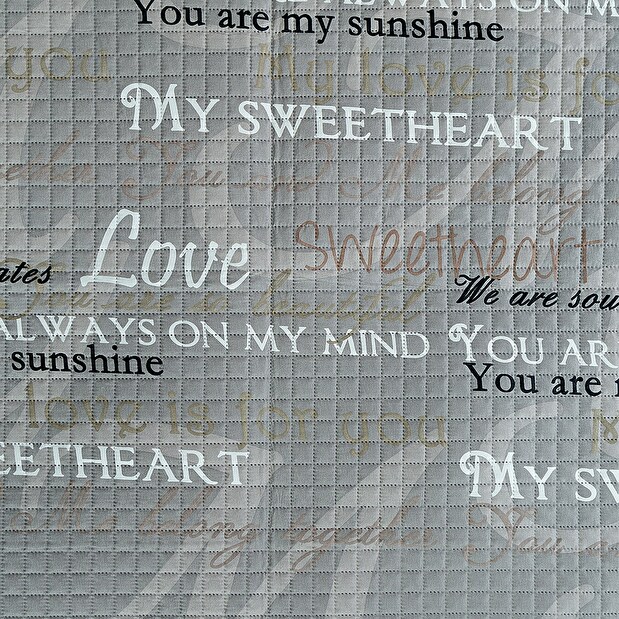 ALWAYS ON M
You are my sunshine
you My love is fo
MY SWEETHEART
You and Me belong
Love sweetheart
ates We are sou
You are so beautiful
ALWAYS ON MY MIND YOU AR
sunshine You are
love is for you
EETHEART MY SW
Me belong together You a